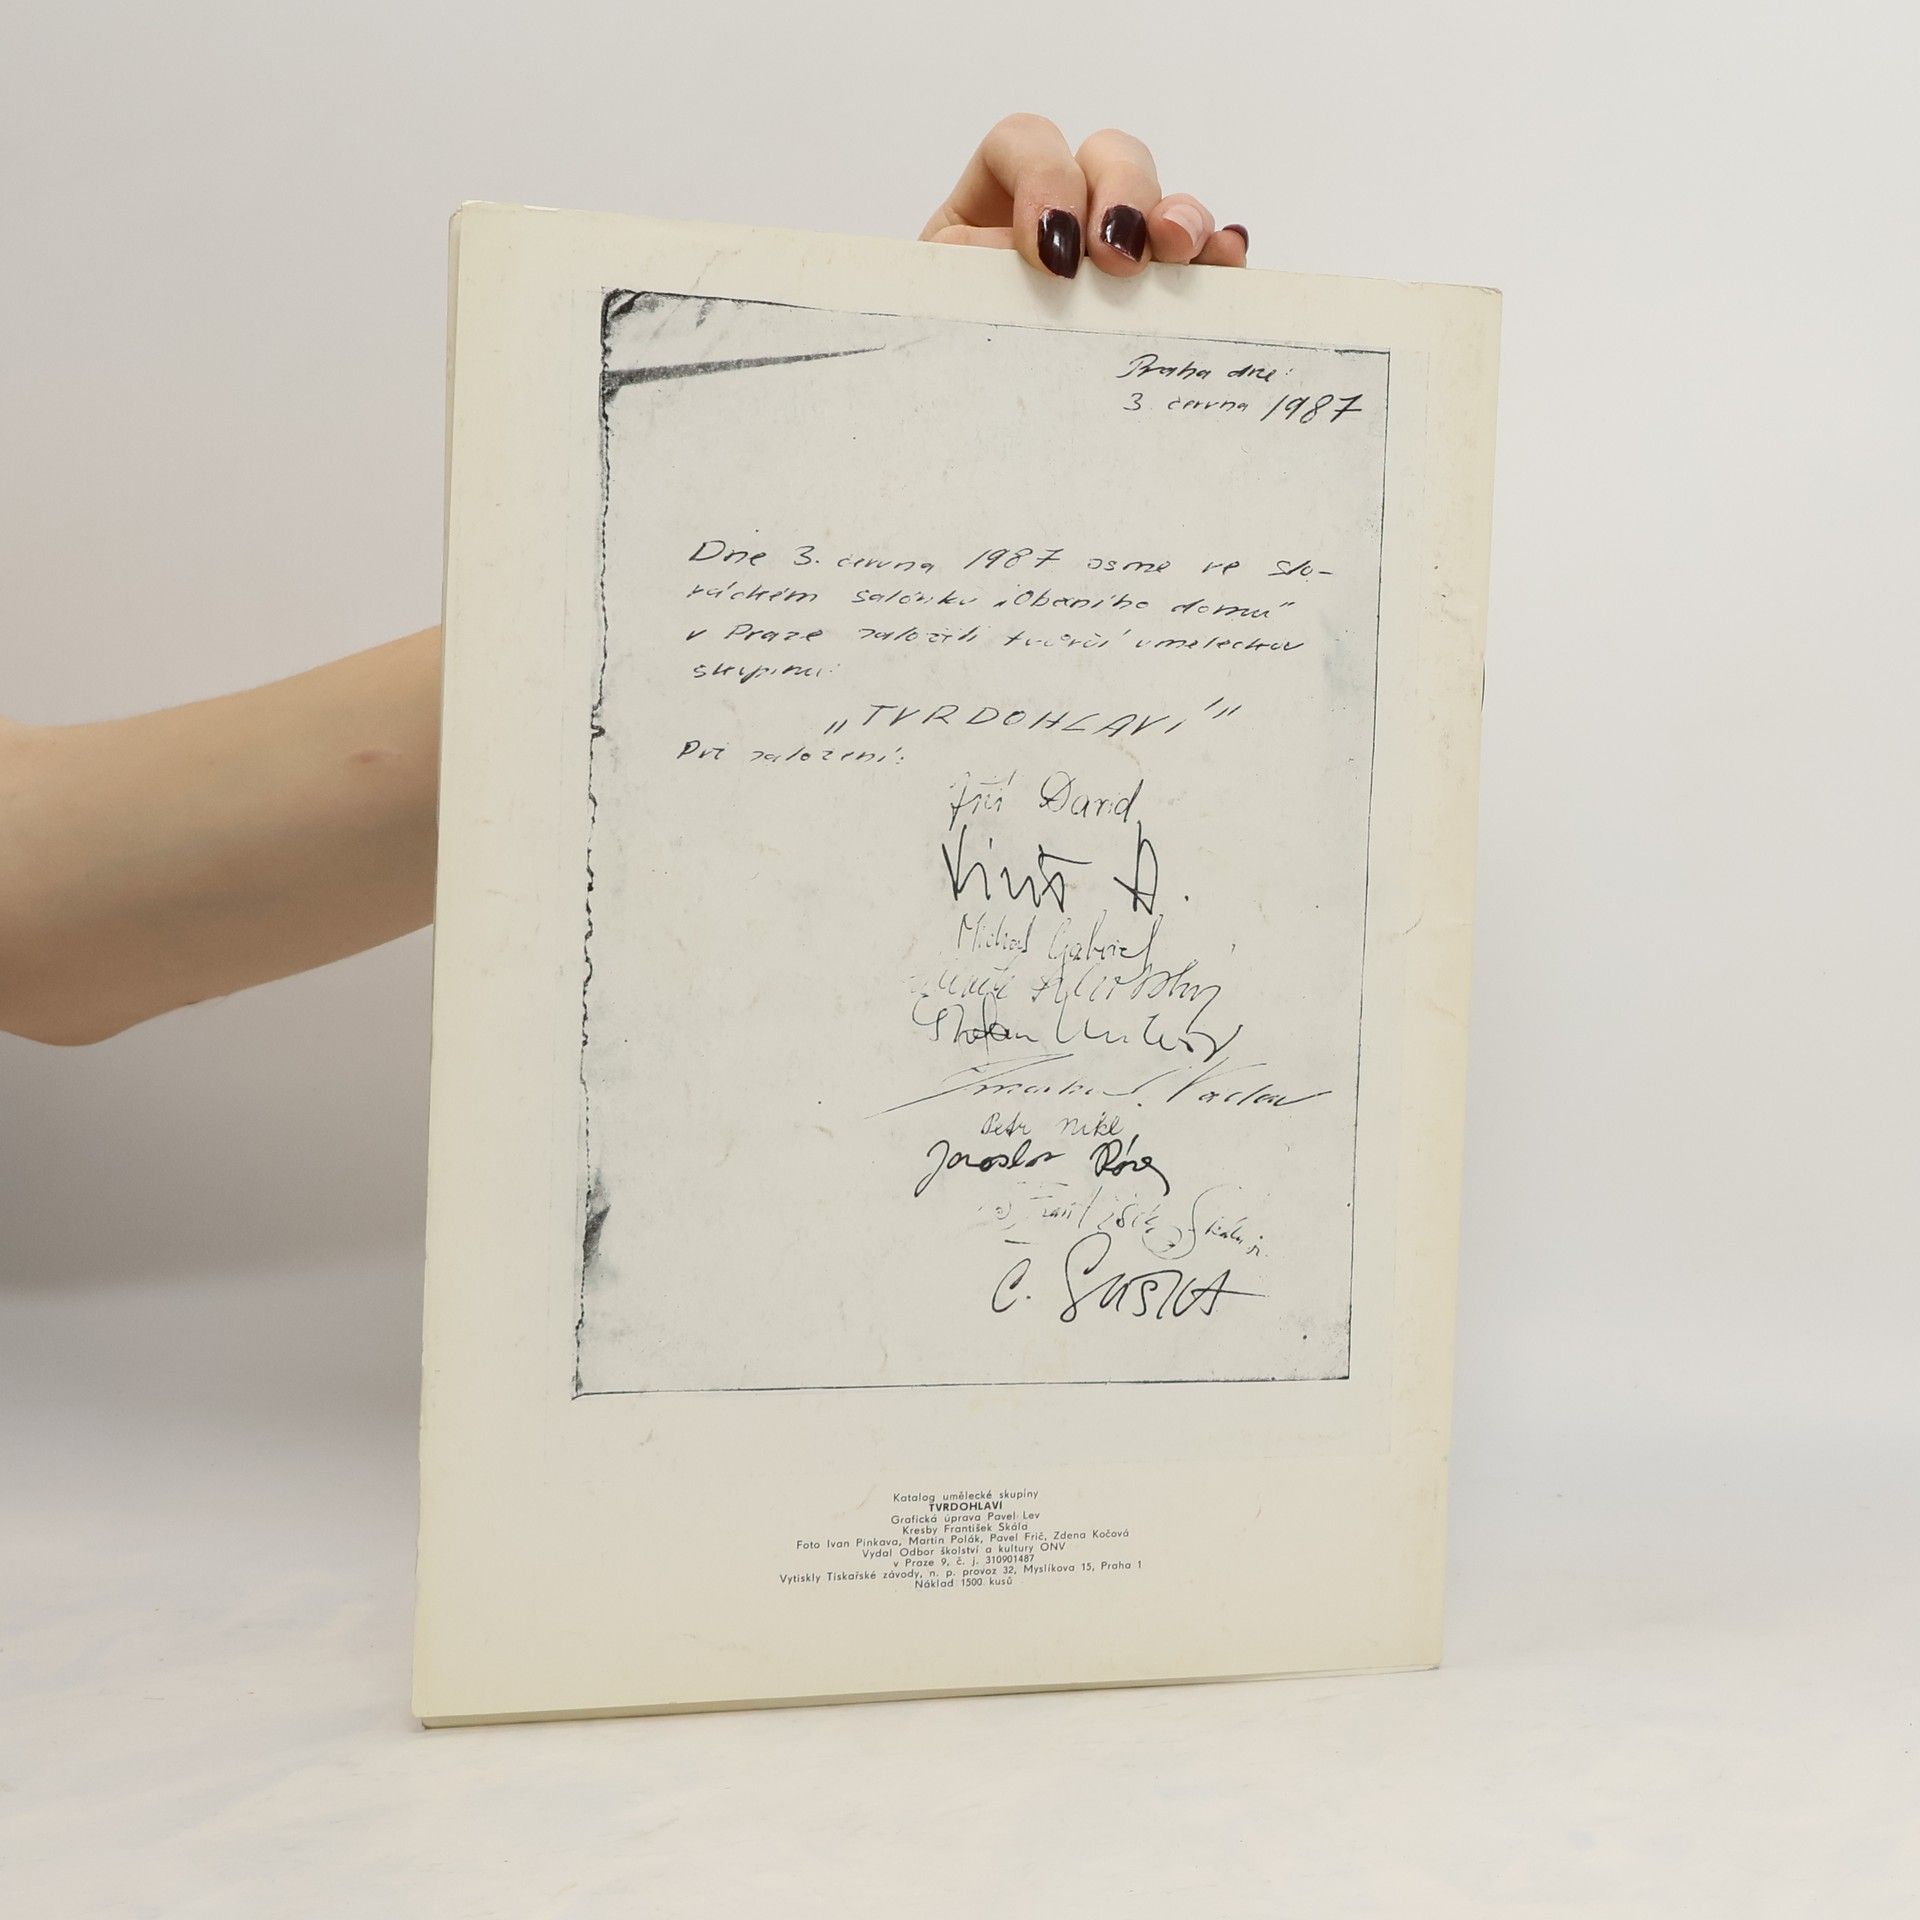 Praha dne:
3. června 1987
Dne 3. června 1987 jsme ve slo-
váckém salónku „Obecního domu"
v Praze založili tvůrčí uměleckou
skupinu:
„TVRDOHLAVÍ"
Při založení:
Jiří David
Michal Gabriel
Stefan Milkov
Václav
Petr Nikl
Jaroslav Róna
František Skála jr.
Č. Suška
Katalog umělecké skupiny
TVRDOHLAVÍ
Grafická úprava Pavel Lev
Kresby František Skála
Foto Ivan Pinkava, Martin Polák, Pavel Frič, Zdena Kočová
Vydal Odbor školství a kultury ONV
v Praze 9, č. j. 310901487
Vytiskly Tiskařské závody, n. p. provoz 32, Myslíkova 15, Praha 1
Náklad 1500 kusů